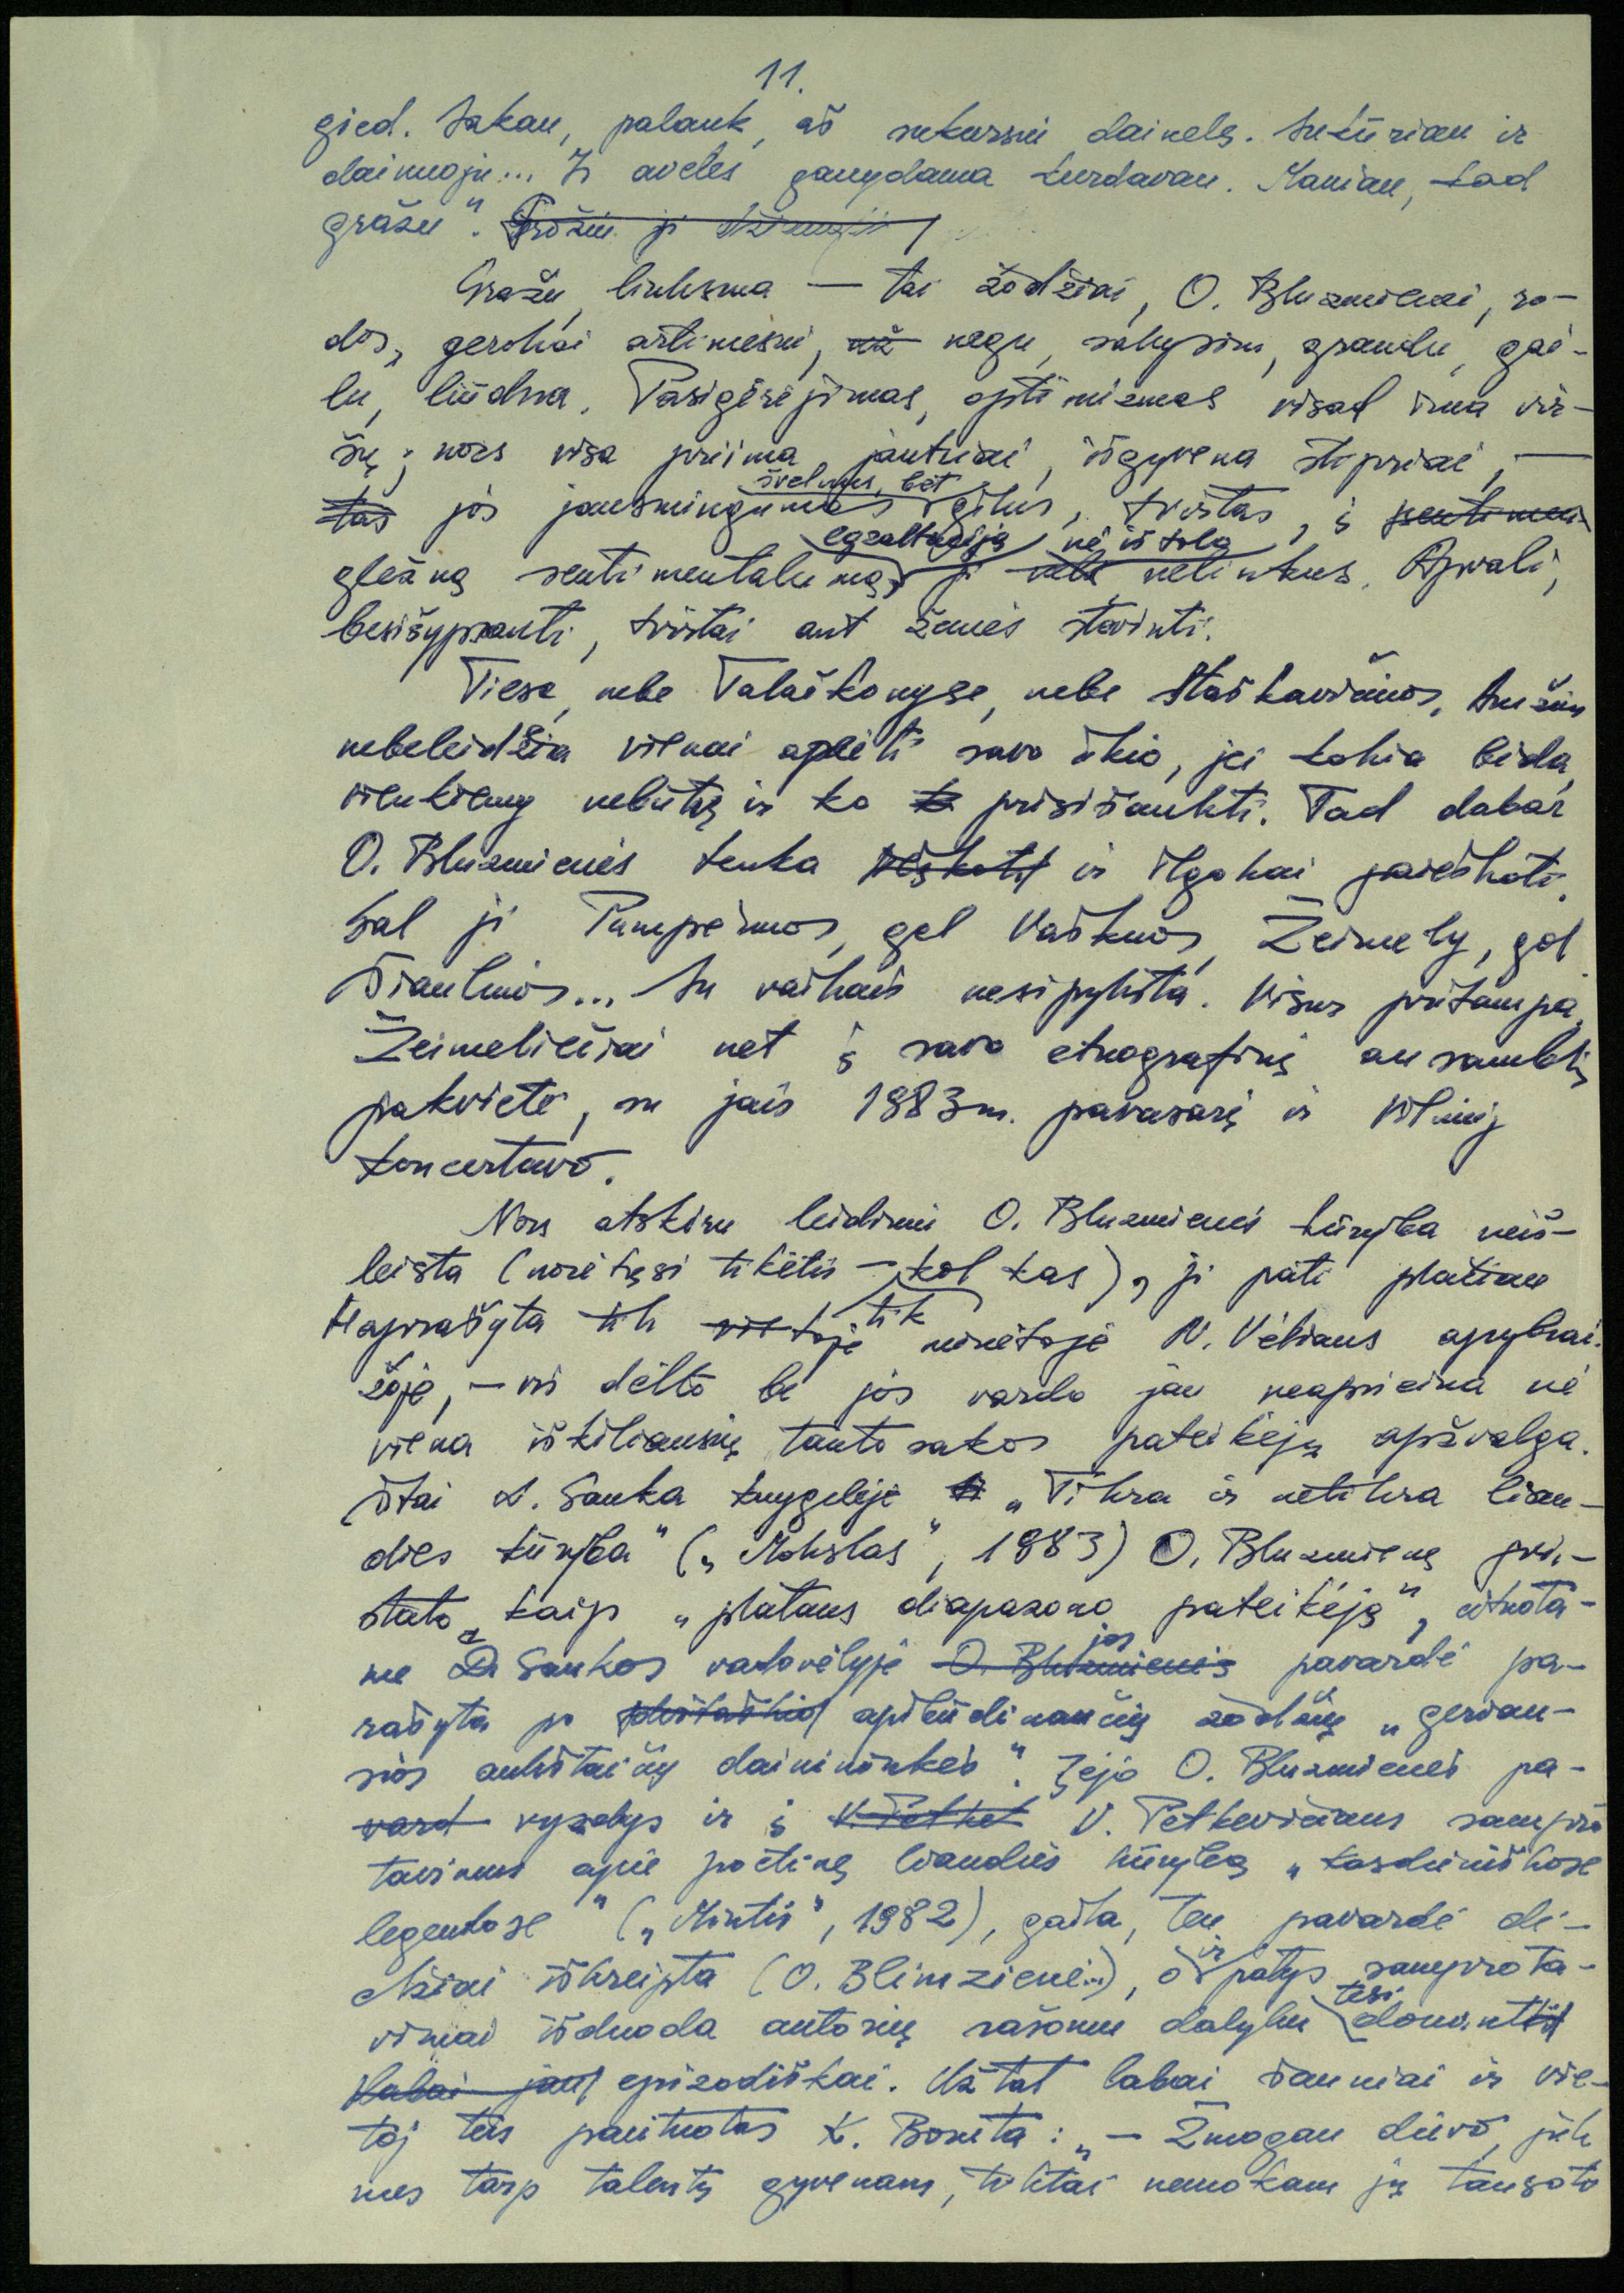 11.
gied. Sakau, palauk, aš sukursiu dainelę. Sukūriau ir
dainuoju... Ir aveles ganydama kurdavau. Maniau, kad
gražu". Grožiu ji
Gražu, linksma — tai žodžiai, O. Bluzmienei, ro-
dos, gerokai artimesni, už negu, sakysim, graudu, gai-
lu, liūdna. Pasigėrėjimas, optimizmas visad ima vir-
šų; nors visa priima jautriai, išgyvena stipriai, —
švelnus, bet
tas jos jausmingumas gilus, tvirtas, į sentimen
egzaltaciją nė iš tolo
gležną sentimentalumą, ji nelinkus. Apvali,
besišypsanti, tvirtai ant žemės stovinti.
Tiesa, nebe Talačkonyse, nebe Staškavičiuos. Amžius
nebeleidžia vienai apeiti savo ūkio, jei kokia bėda,
vienkiemy nebūtų ir ko prisišaukti. Tad dabar
O. Bluzmienės tenka ieškoti ir ilgokai paieškoti.
Gal ji Pumpėnuos, gal Vaškuos, Žeimely, gal
Šiauliuos... Su vaikais nesipyksta. Visur pritampa.
Žeimeliečiai net į savo etnografinį ansamblį
pakvietė, su jais 1983 m. pavasarį ir Vilniuj
koncertavo.
Nors atskiru leidiniu O. Bluzmienės kūryba neiš-
leista (norėtųsi tikėtis – kol kas), ji pati plačiau
tik
aprašyta tik vietoje minėtoje N. Vėliaus apybrai-
žoje, – vis dėlto be jos vardo jau neapsieina nė
viena iškiliausių tautosakos pateikėjų apžvalga.
Štai L. Sauka knygelėje „Tikra ir netikra liau-
dies kūryba" („Mokslas", 1983) O. Bluzmienę pri-
stato kaip „plataus diapazono pateikėją", citnota-
jos
me D. Saukos vadovėlyje O. Bluzmienės pavardė pa-
rašyta po apibūdinančių žodžių „geriau-
sios aukštaičių dainininkės". Įėjo O. Bluzmienės pa-
vard vyzdys ir į V. Petkev V. Petkevičiaus sampro
tavimus apie poetinę liaudies kūrybą „kasdieniškose
legendose" („Mintis", 1982), gaila, ten pavardė di-
ir
džiai iškreipta (O. Blimzienė...), o patys samprota-
tesi
vimai išduoda autorių rašomu dalyku domintis
labai jau epizodiškai. Užtat labai šauniai ir vie-
toj ten pacituotas K. Boruta: „– Žmogau dievo, juk
mes tarp talentų gyvenam, tiktai nemokam jų tausoti